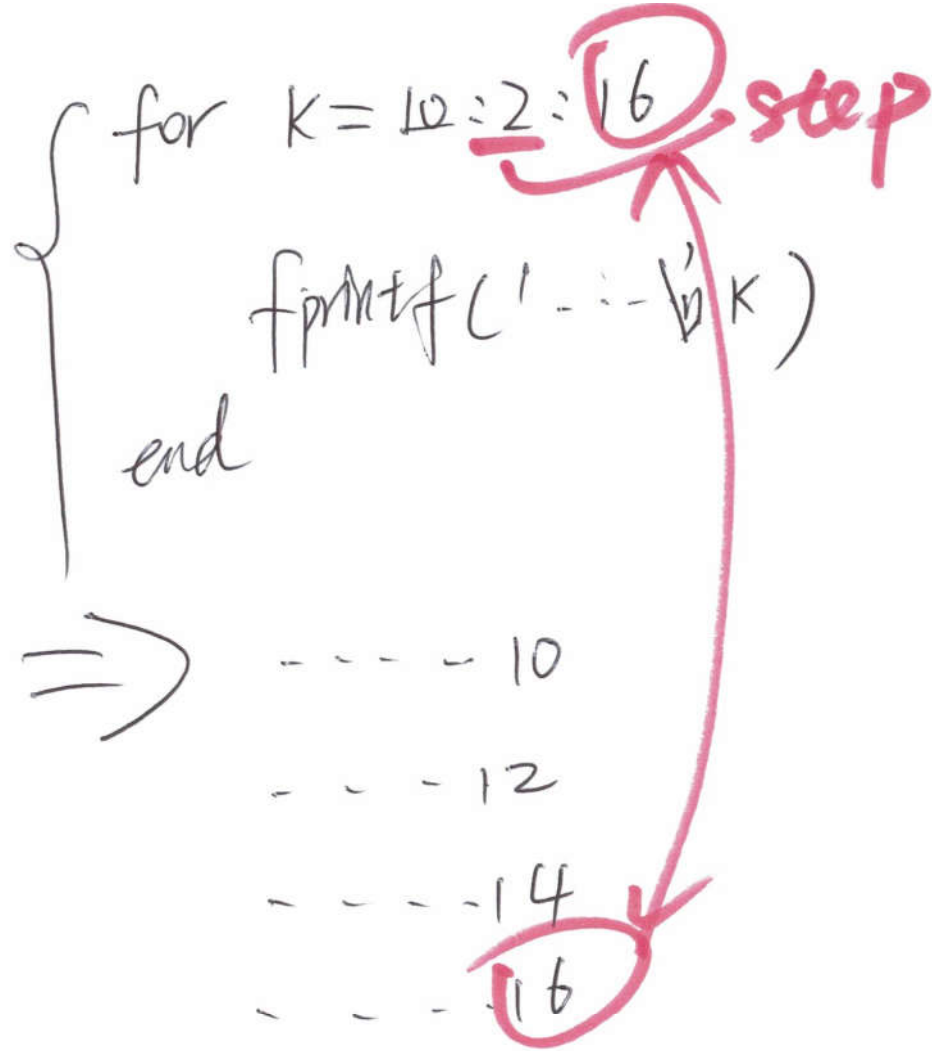 for K = 10:2:16 step
fprintf('...\n' K)
end
⇒ - - - - 10
- - - 12
- - - - 14
- - - - 16